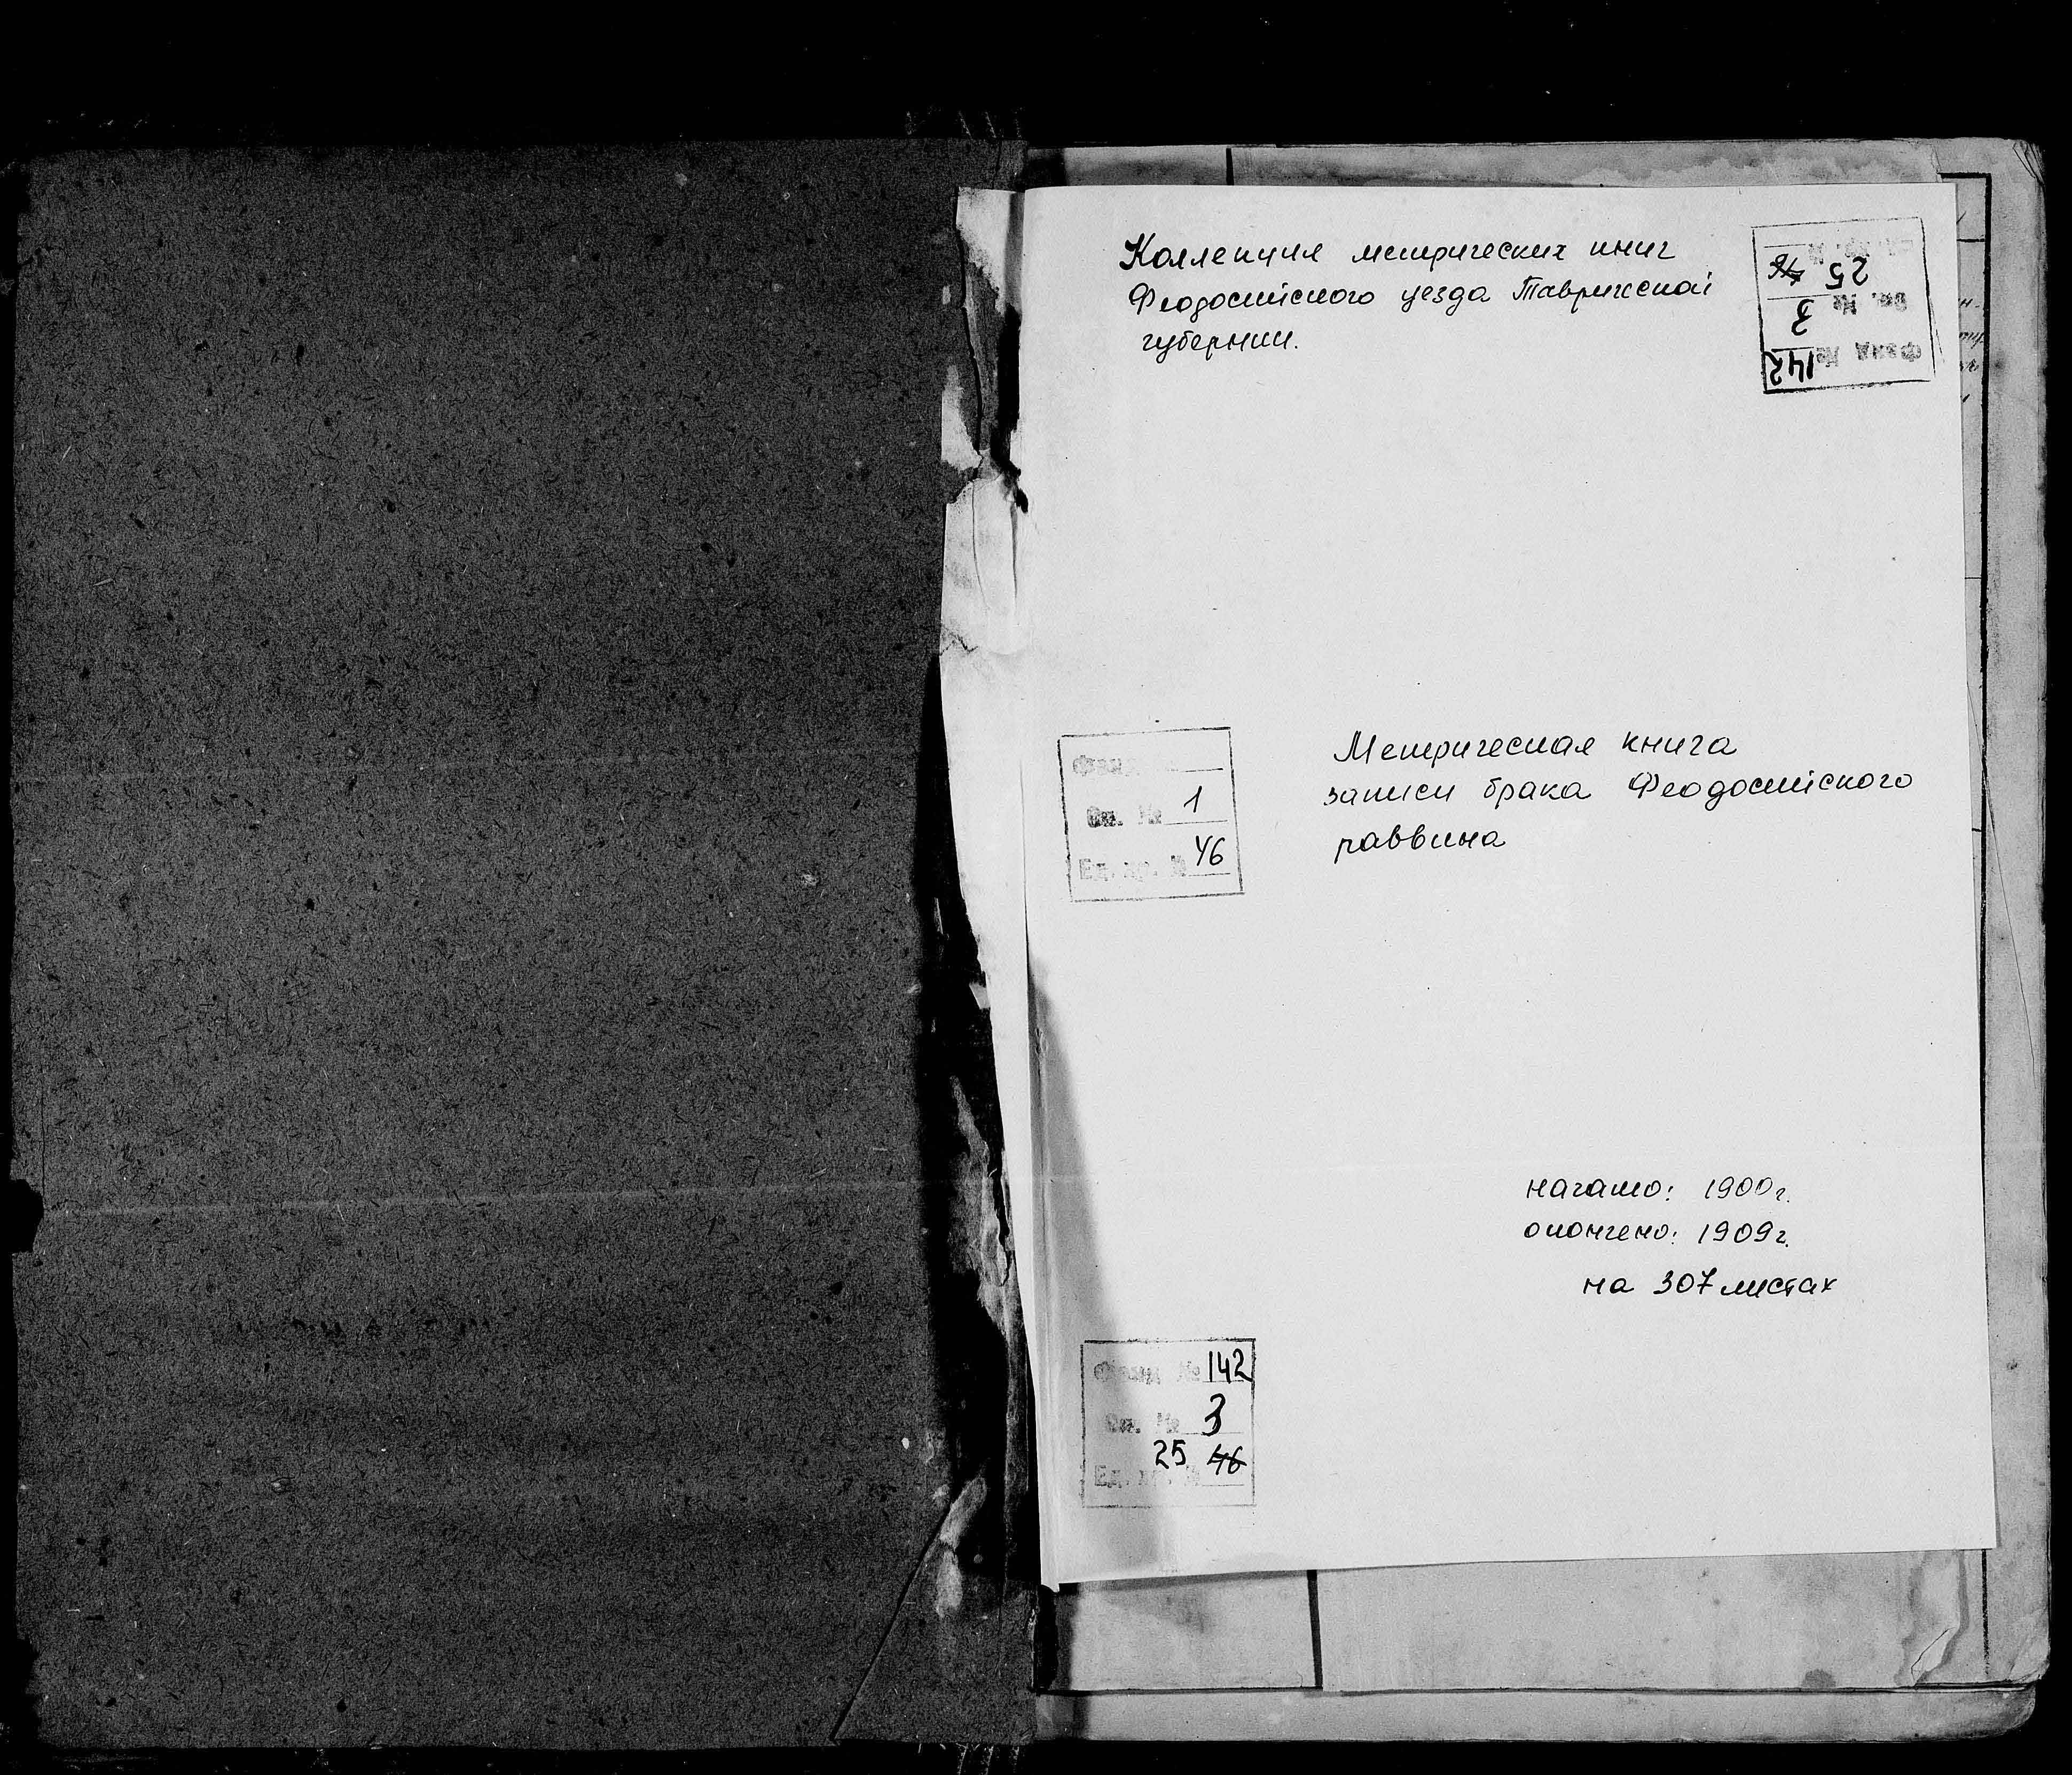 Коллекция метрических книг
Феодосийского уезда Таврической
губернии.
Ед. хр. №
25 46
Оп. № 3
Фонд № 142
Фонд №
Оп. № 1
Ед. хр. № 46
Метрическая книга
записи брака Феодосийского
раввина
начато: 1900г.
окончено: 1909г.
на 307 листах
Фонд № 142
Оп. № 3
25 46
Ед. хр. №